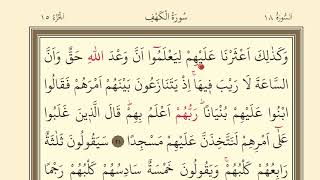 السُّورَةُ ١٨ سُورَةُ الْكَهْفِ الْجُزْءُ ١٥
وَكَذٰلِكَ اَعْثَرْنَا عَلَيْهِمْ لِيَعْلَمُٓوا اَنَّ وَعْدَ اللّٰهِ حَقٌّ وَاَنَّ
السَّاعَةَ لَا رَيْبَ فٖيهَاۚ اِذْ يَتَنَازَعُونَ بَيْنَهُمْ اَمْرَهُمْ فَقَالُوا
ابْنُوا عَلَيْهِمْ بُنْيَاناًۜ رَبُّهُمْ اَعْلَمُ بِهِمْۜ قَالَ الَّذٖينَ غَلَبُوا
عَلٰٓى اَمْرِهِمْ لَنَتَّخِذَنَّ عَلَيْهِمْ مَسْجِداً ٢١ سَيَقُولُونَ ثَلٰثَةٌ
رَابِعُهُمْ كَلْبُهُمْۚ وَيَقُولُونَ خَمْسَةٌ سَادِسُهُمْ كَلْبُهُمْ رَجْماً